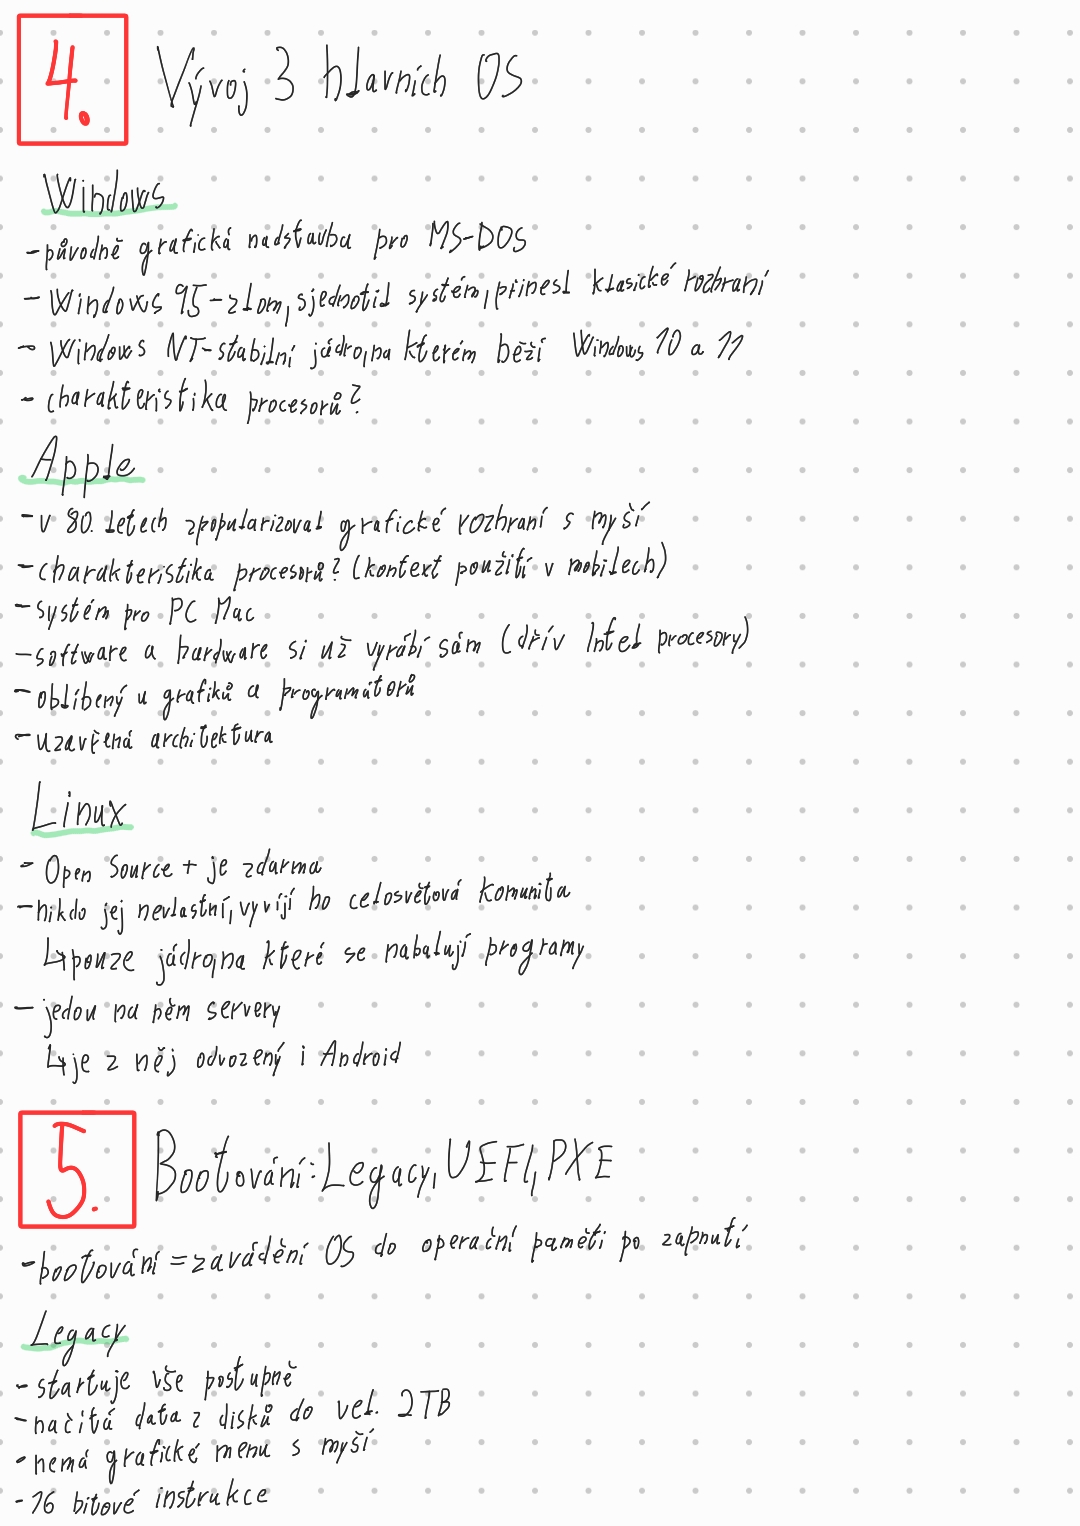 4. Vývoj 3 hlavních OS
Windows
- původně grafická nadstavba pro MS-DOS
- Windows 95 - zlom, sjednotil systém, přinesl klasické rozhraní
- Windows NT - stabilní jádro, na kterém běží Windows 10 a 11
- charakteristika procesorů?
Apple
- v 80. letech zpopularizoval grafické rozhraní s myší
- charakteristika procesorů? (kontext použití v mobilech)
- systém pro PC Mac
- software a hardware si už vyrábí sám (dřív Intel procesory)
- oblíbený u grafiků a programátorů
- uzavřená architektura
Linux
- Open Source + je zdarma
- nikdo jej nevlastní, vyvíjí ho celosvětová komunita
↳ pouze jádro, na které se nabalují programy
- jedou na něm servery
↳ je z něj odvozený i Android
5. Bootování: Legacy, UEFI, PXE
- bootování = zavádění OS do operační paměti po zapnutí
Legacy
- startuje vše postupně
- načítá data z disků do vel. 2TB
- nemá grafické menu s myší
- 16 bitové instrukce